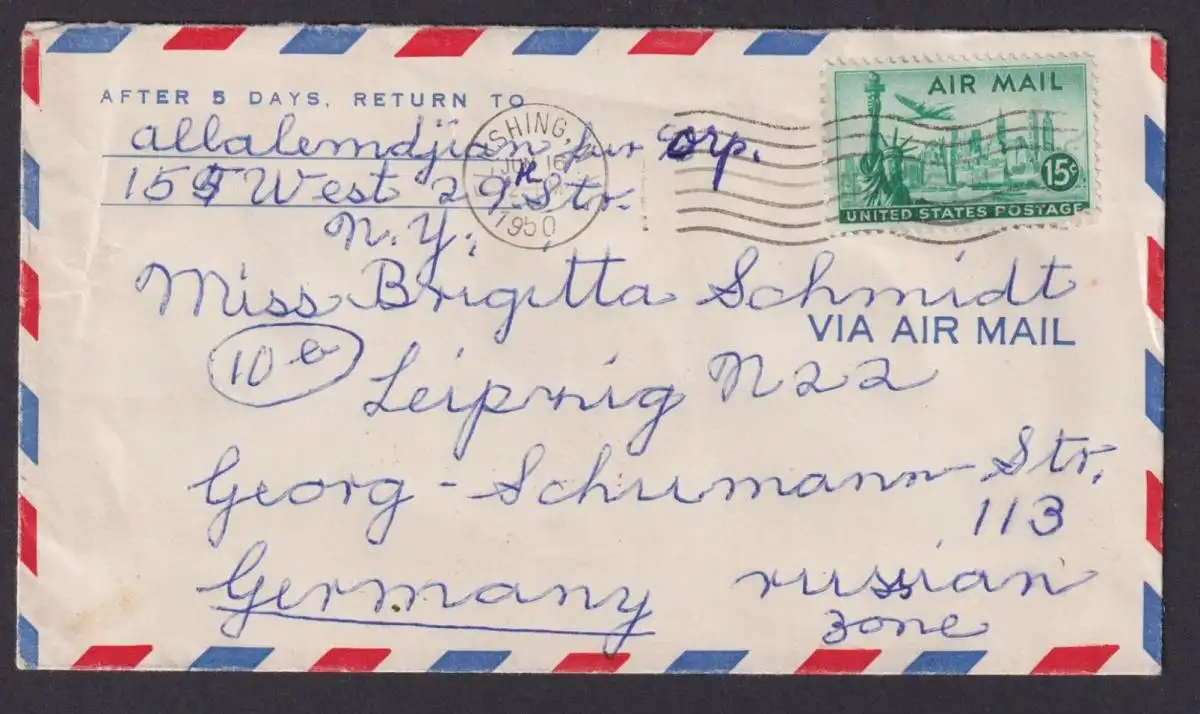 AIR MAIL
15¢
UNITED STATES POSTAGE
AFTER 5 DAYS, RETURN TO
allalemdjian fur Corp.
155 West 29 Str.
N.Y.
SHING,
JUN 16
1950
Miss Brigitta Schmidt
VIA AIR MAIL
10b
Leipzig N22
Georg-Schumann-Str.
113
Germany russian
zone